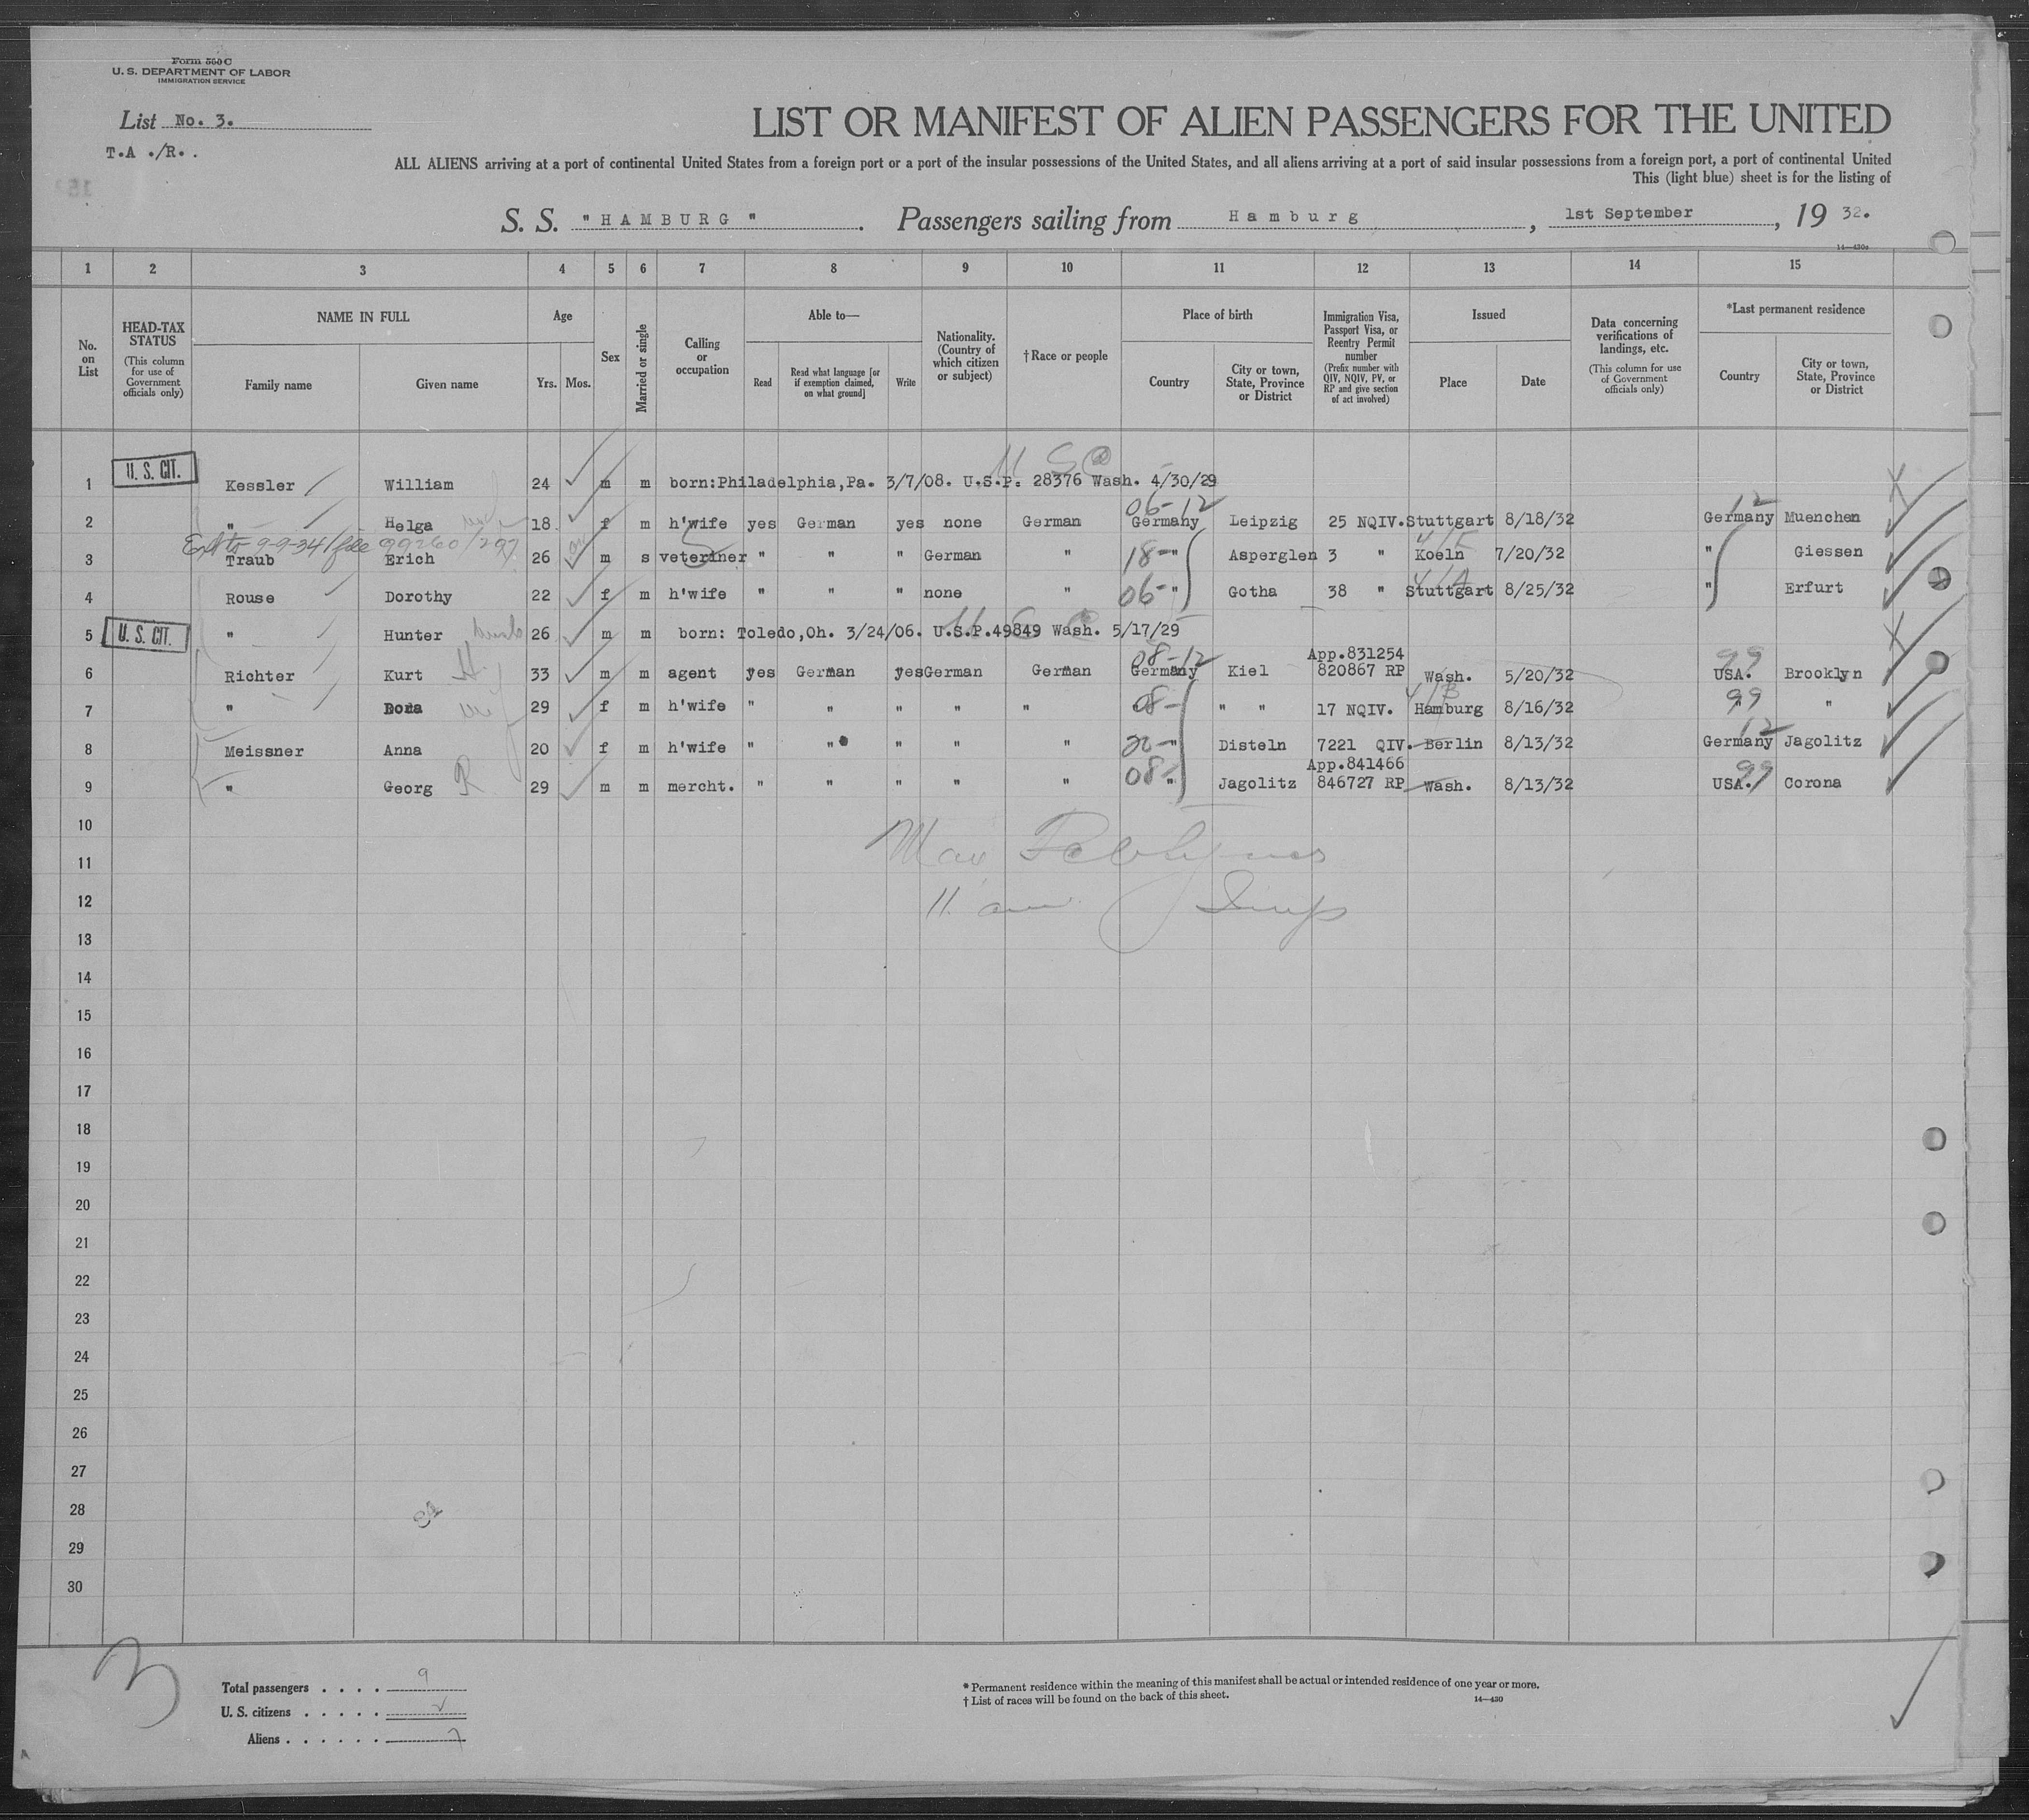 Form 500 C
U. S. DEPARTMENT OF LABOR
IMMIGRATION SERVICE
List No. 3.
T.A ./R. .
LIST OR MANIFEST OF ALIEN PASSENGERS FOR THE UNITED
ALL ALIENS arriving at a port of continental United States from a foreign port or a port of the insular possessions of the United States, and all aliens arriving at a port of said insular possessions from a foreign port, a port of continental United
This (light blue) sheet is for the listing of
S. S. " HAMBURG " . Passengers sailing from Hamburg , 1st September , 19 32.
14—430a
1 2 3 4 5 6 7 8 9 10 11 12 13 14 15
No. on List
HEAD-TAX STATUS (This column for use of Government officials only)
NAME IN FULL
Family name Given name
Age
Yrs. Mos.
Sex
Married or single
Calling or occupation
Able to—
Read Read what language [or if exemption claimed, on what ground] Write
Nationality. (Country of which citizen or subject)
†Race or people
Place of birth
Country City or town, State, Province or District
Immigration Visa, Passport Visa, or Reentry Permit number (Prefix number with QIV, NQIV, PV, or RP and give section of act involved)
Issued
Place Date
Data concerning verifications of landings, etc. (This column for use of Government officials only)
*Last permanent residence
Country City or town, State, Province or District
U S C
1 U. S. CIT. Kessler William 24 m m born:Philadelphia,Pa. 3/7/08. U.S.P. 28376 Wash. 4/30/29
06-12 12
2 " Helga 18 f m h'wife yes German yes none German Germany Leipzig 25 NQIV. Stuttgart 8/18/32 Germany Muenchen
Ext to 9-9-34 file 99260/297
3 Traub Erich 26 m s veteriner " " " German " 18- " Asperglen 3 " Koeln 7/20/32 " Giessen
4 Rouse Dorothy 22 f m h'wife " " " none " 06- " Gotha 38 " Stuttgart 8/25/32 " Erfurt
5 U. S. CIT. " Hunter 26 m m born: Toledo,Oh. 3/24/06. U.S.P.49849 Wash. 5/17/29
08-12 App.831254 99
6 Richter Kurt H. 33 m m agent yes German yes German German Germany Kiel 820867 RP Wash. 5/20/32 USA. Brooklyn
7 " Dora wif 29 f m h'wife " " " " " 08- " " 17 NQIV. Hamburg 8/16/32 99 "
12
8 Meissner Anna 20 f m h'wife " " " " " 20- " Disteln 7221 QIV. Berlin 8/13/32 Germany Jagolitz
App.841466 99
9 " Georg R 29 m m mercht. " " " " " 08- " Jagolitz 846727 RP Wash. 8/13/32 USA. Corona
10
11
12 11 am
13
14
15
16
17
18
19
20
21
22
23
24
25
26
27
28
29
30
3
Total passengers . . . . 9
U. S. citizens . . . . . 2
Aliens . . . . . . 7
* Permanent residence within the meaning of this manifest shall be actual or intended residence of one year or more.
† List of races will be found on the back of this sheet.
14—430